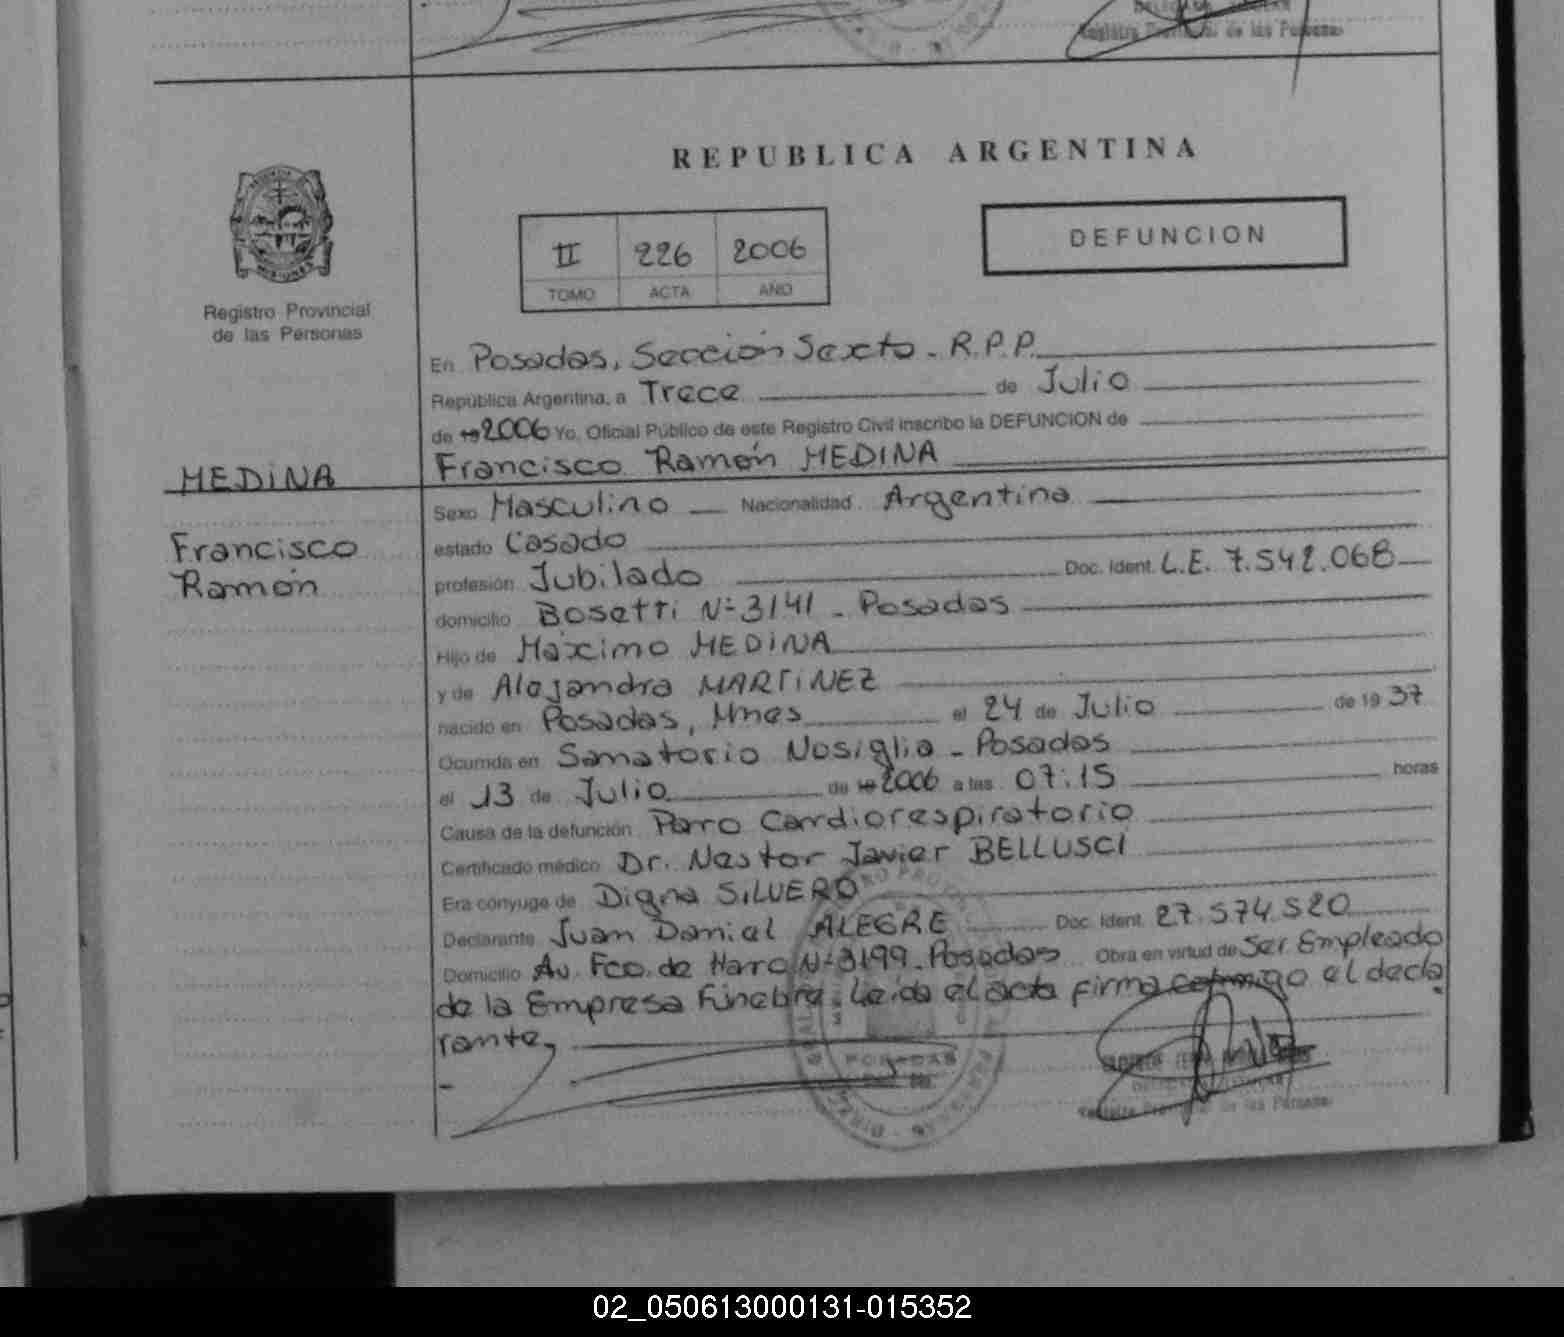 Registro Provincial de las Personas
REPUBLICA ARGENTINA
II 226 2006
TOMO ACTA AÑO
DEFUNCION
Registro Provincial
de las Personas
En Posadas, Sección Sexta - R.P.P.
República Argentina, a Trece de Julio
de 19 2006 Yo, Oficial Público de este Registro Civil inscribo la DEFUNCION de
MEDINA Francisco Ramón MEDINA
Sexo Masculino Nacionalidad Argentina
Francisco estado Casado
Ramón profesión Jubilado Doc. Ident. L.E. 7.542.068
domicilio Bosetti Nº 3141 - Posadas
Hijo de Máximo MEDINA
y de Alejandra MARTINEZ
nacido en Posadas, Mnes el 24 de Julio de 19 37
Ocurrida en Sanatorio Nosiglia - Posadas
el 13 de Julio de 19 2006 a las 07:15 horas
Causa de la defunción Paro Cardiorespiratorio
Certificado médico Dr. Nestor Javier BELLUSCI
Era cónyuge de Digna SILVERO
Declarante Juan Daniel ALEGRE Doc. Ident. 27.574.520
Domicilio Av. Fco. de Haro Nº 3199 - Posadas Obra en virtud de Ser Empleado
de la Empresa Fúnebre. Leida el acta firma conmigo el decla
rante,
POSADAS
Registro Provincial de las Personas
02_050613000131-015352